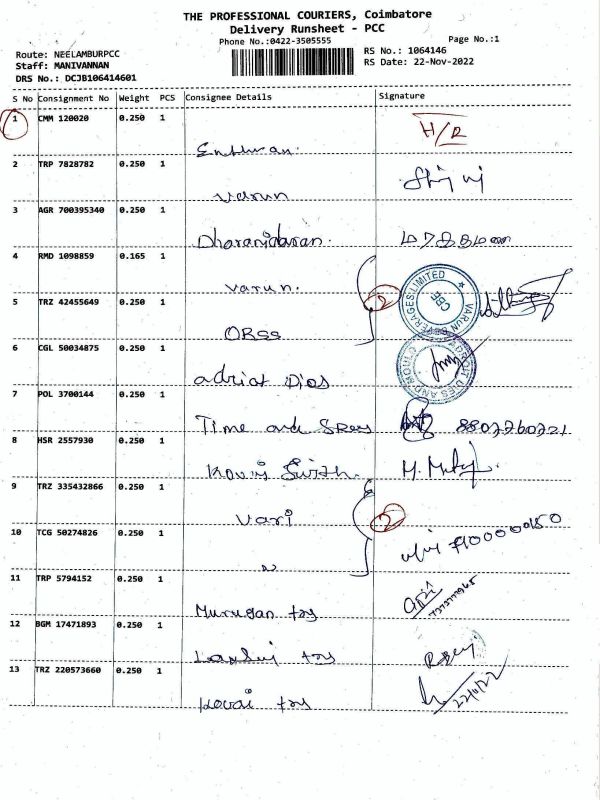 THE PROFESSIONAL COURIERS, Coimbatore
Delivery Runsheet - PCC
Phone No.:0422-3505555
Page No.:1
Route: NEELAMBURPCC
Staff: MANIVANNAN
DRS No.: DCJB106414601
RS No.: 1064146
RS Date: 22-Nov-2022
S No Consignment No Weight PCS Consignee Details Signature
1 CMM 120020 0.250 1 H/R
2 TRP 7828782 0.250 1
Varun
3 AGR 700395340 0.250 1
Dharanidaran.
4 RMD 1098859 0.165 1
Varun. 2
VARUN BEVERAGES LIMITED
CBE
5 TRZ 42455649 0.250 1
OBSS
6 CGL 50034875 0.250 1
adriat Dios
7 POL 3700144 0.250 1
Time and
8 HSR 2557930 0.250 1
9 TRZ 335432866 0.250 1
Vari 2
10 TCG 50274826 0.250 1
11 TRP 5794152 0.250 1
Murugan toy
12 BGM 17471893 0.250 1
toy
13 TRZ 220573660 0.250 1
Kovai toy